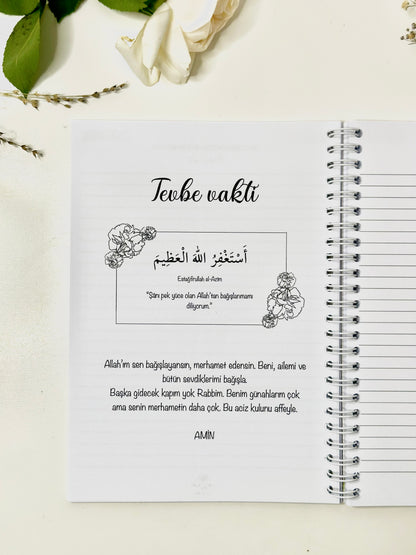 Tevbe vakti
أَسْتَغْفِرُ اللهَ الْعَظِيمَ
Estağfirullah el-Azim
"Şânı pek yüce olan Allah'tan bağışlanmamı
diliyorum."
Allah'ım sen bağışlayansın, merhamet edensin. Beni, ailemi ve
bütün sevdiklerimi bağışla.
Başka gidecek kapım yok Rabbim. Benim günahlarım çok
ama senin merhametin daha çok. Bu aciz kulunu affeyle.
AMİN